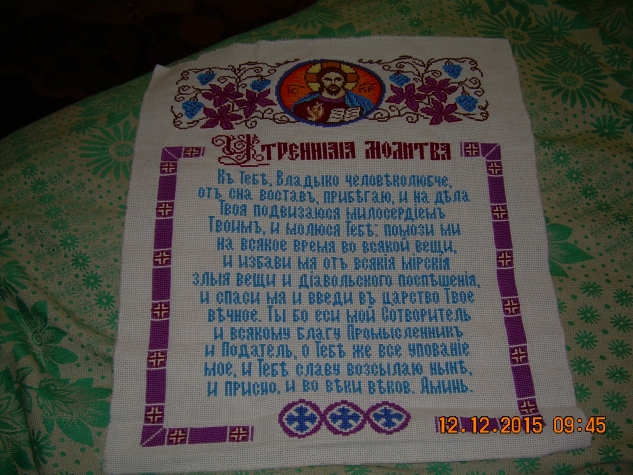 Утренняя молитва
Къ Тебѣ, Владыко человѣколюбче,
отъ сна воставъ, прибѣгаю, и на дѣла
Твоя подвизаюся милосердіемъ
Твоимъ, и молюся Тебѣ: помози ми
на всякое время во всякой вещи,
и избави мя отъ всякія мірскія
злыя вещи и діавольского поспѣшенія,
и спаси мя и введи въ царство Твое
вѣчное. Ты бо еси мой Сотворитель
и всякому благу Промысленникъ
и Податель, о Тебѣ же все упованіе
мое, и Тебѣ славу возсылаю нынѣ,
и присно, и во вѣки вѣковъ. Аминь.
12.12.2015 09:45